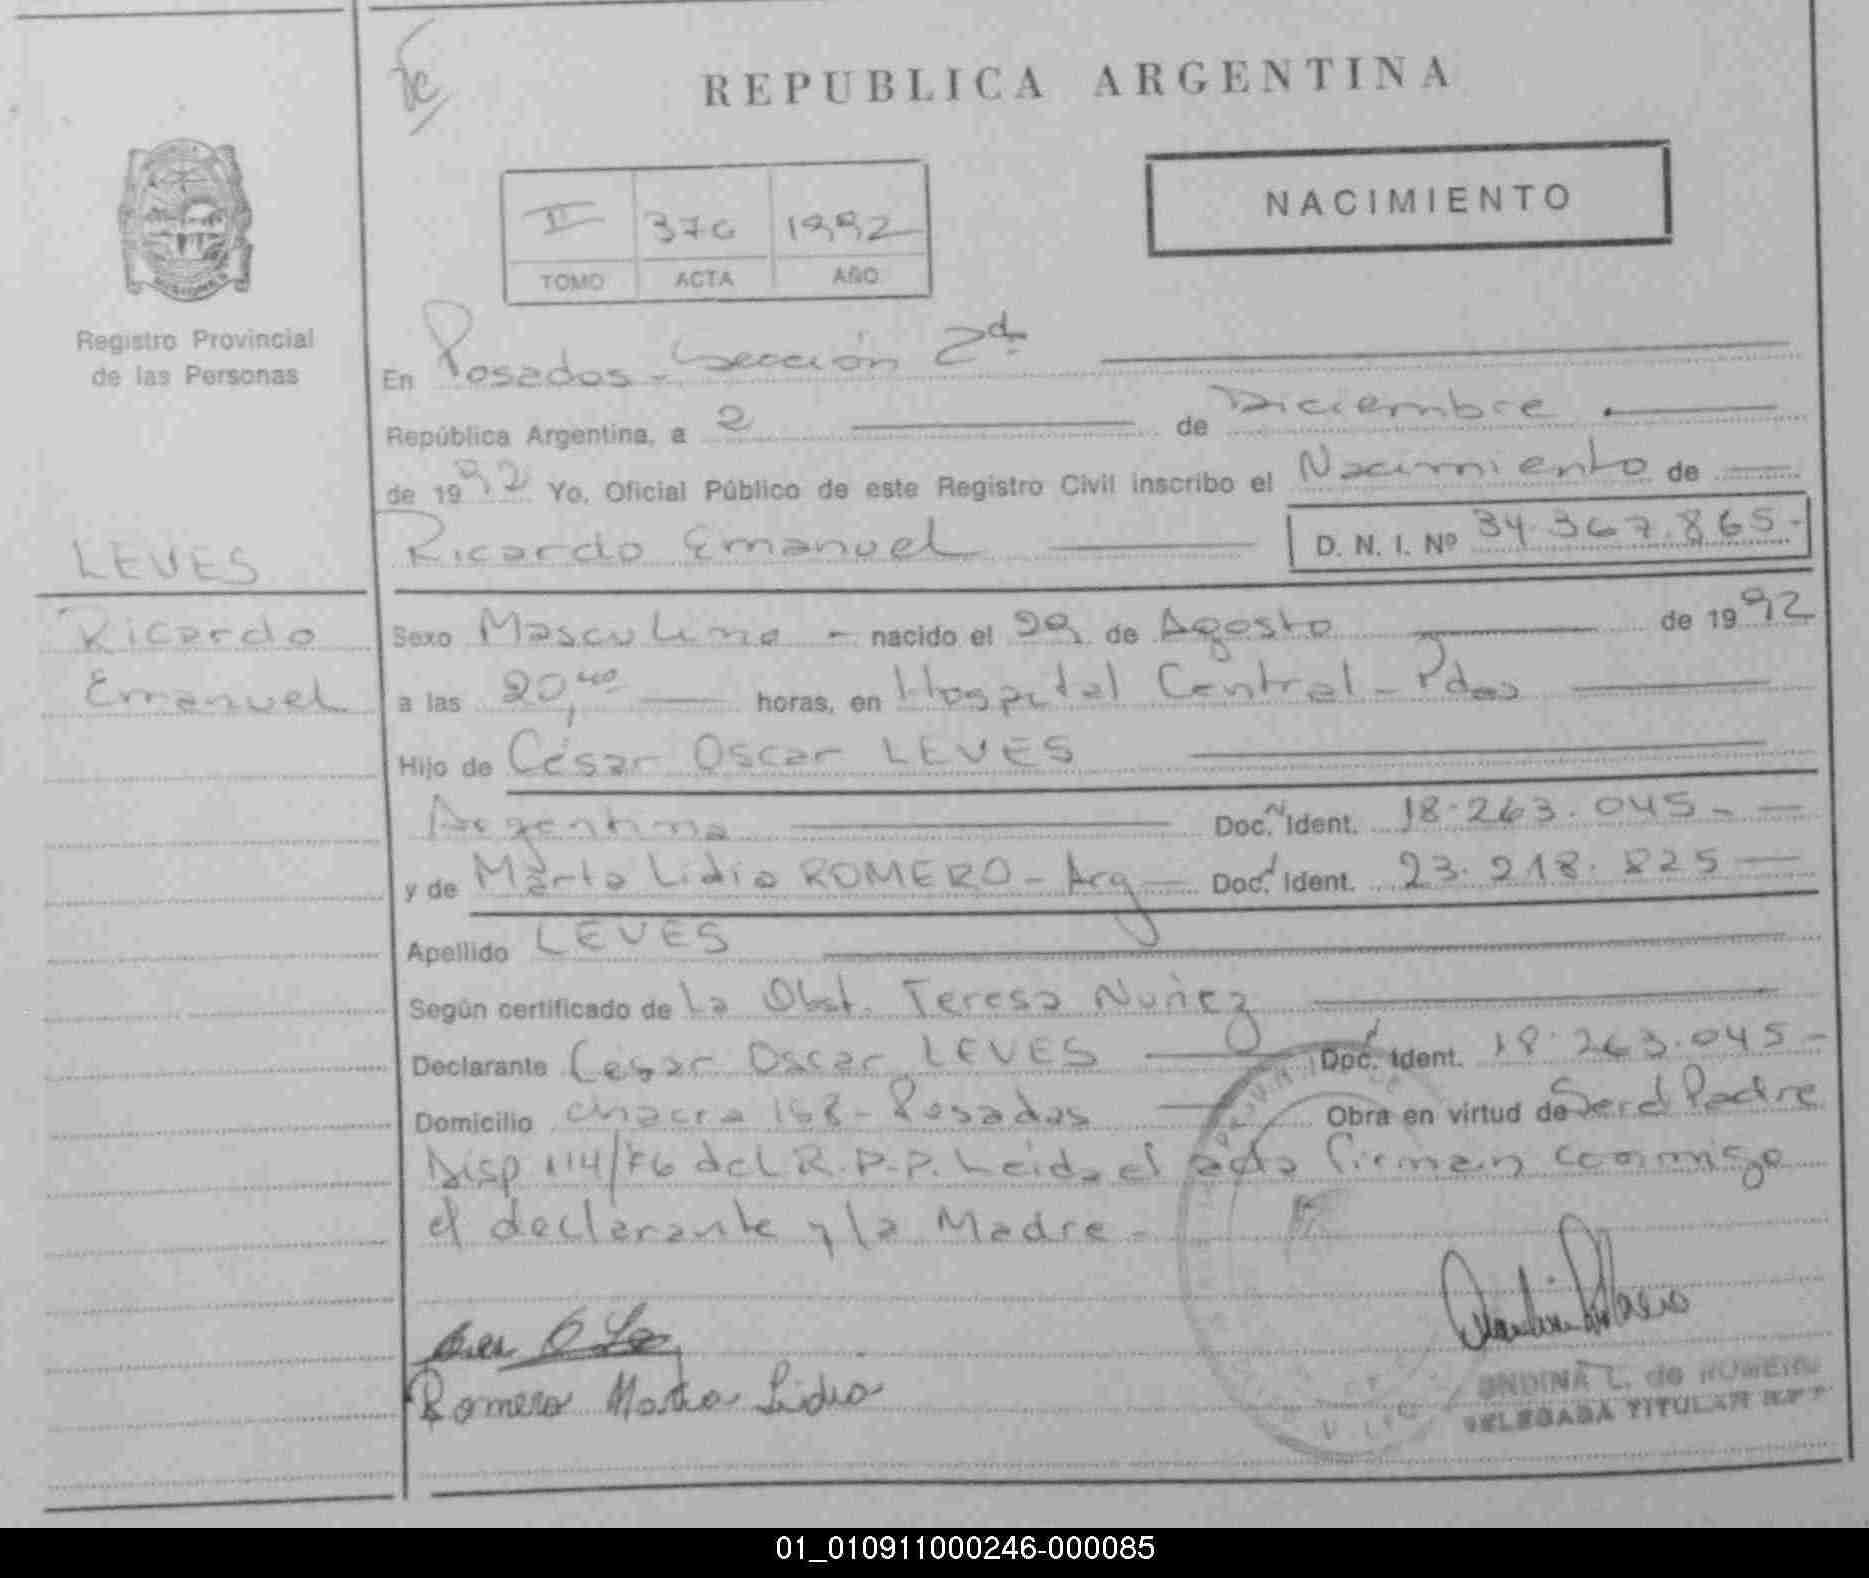 REPUBLICA ARGENTINA
NACIMIENTO
II 376 1992
TOMO ACTA AÑO
Registro Provincial
de las Personas
LEVES
Ricardo
Emanuel
En Posadas - Sección 2da
República Argentina, a 2 de Diciembre
de 1992 Yo, Oficial Público de este Registro Civil inscribo el Nacimiento de
Ricardo Emanuel D. N. I. Nº 34.367.865-
Sexo Masculino - nacido el 29 de Agosto de 1992
a las 20,40 horas, en Hospital Central - Pdas
Hijo de César Oscar LEVES
Argentina Doc. Ident. 18.263.045-
y de Marta Lidia ROMERO - Arg Doc. Ident. 23.218.825
Apellido LEVES
Según certificado de La Obst. Teresa Nuñez
Declarante César Oscar LEVES Doc. Ident. 18.263.045-
Domicilio chacra 168 - Posadas Obra en virtud de Ser el Padre
Disp 114/76 del R.P.P. Leida el acta firman conmigo
el declarante y la Madre -
Romero Marta Lidia
ONDINA L. de ROMERO
DELEGADA TITULAR R.P.P.
01_010911000246-000085